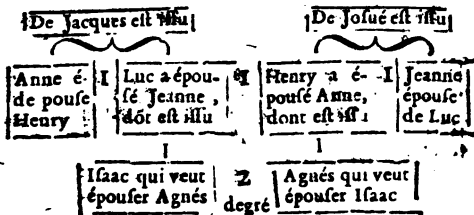 De Jacques eſt iſſu
De Joſué eſt iſſu
Anne é-
de pouſe
Henry
I
Luc a épou-
ſé Jeanne,
dõt est iſſu
I
Henry a é-
pouſé Anne,
dont est iſſu
I
Jeanne
épouſe
de Luc
I
I
Iſaac qui veut
épouſer Agnés
2
degré
Agnés qui veut
épouſer Iſaac